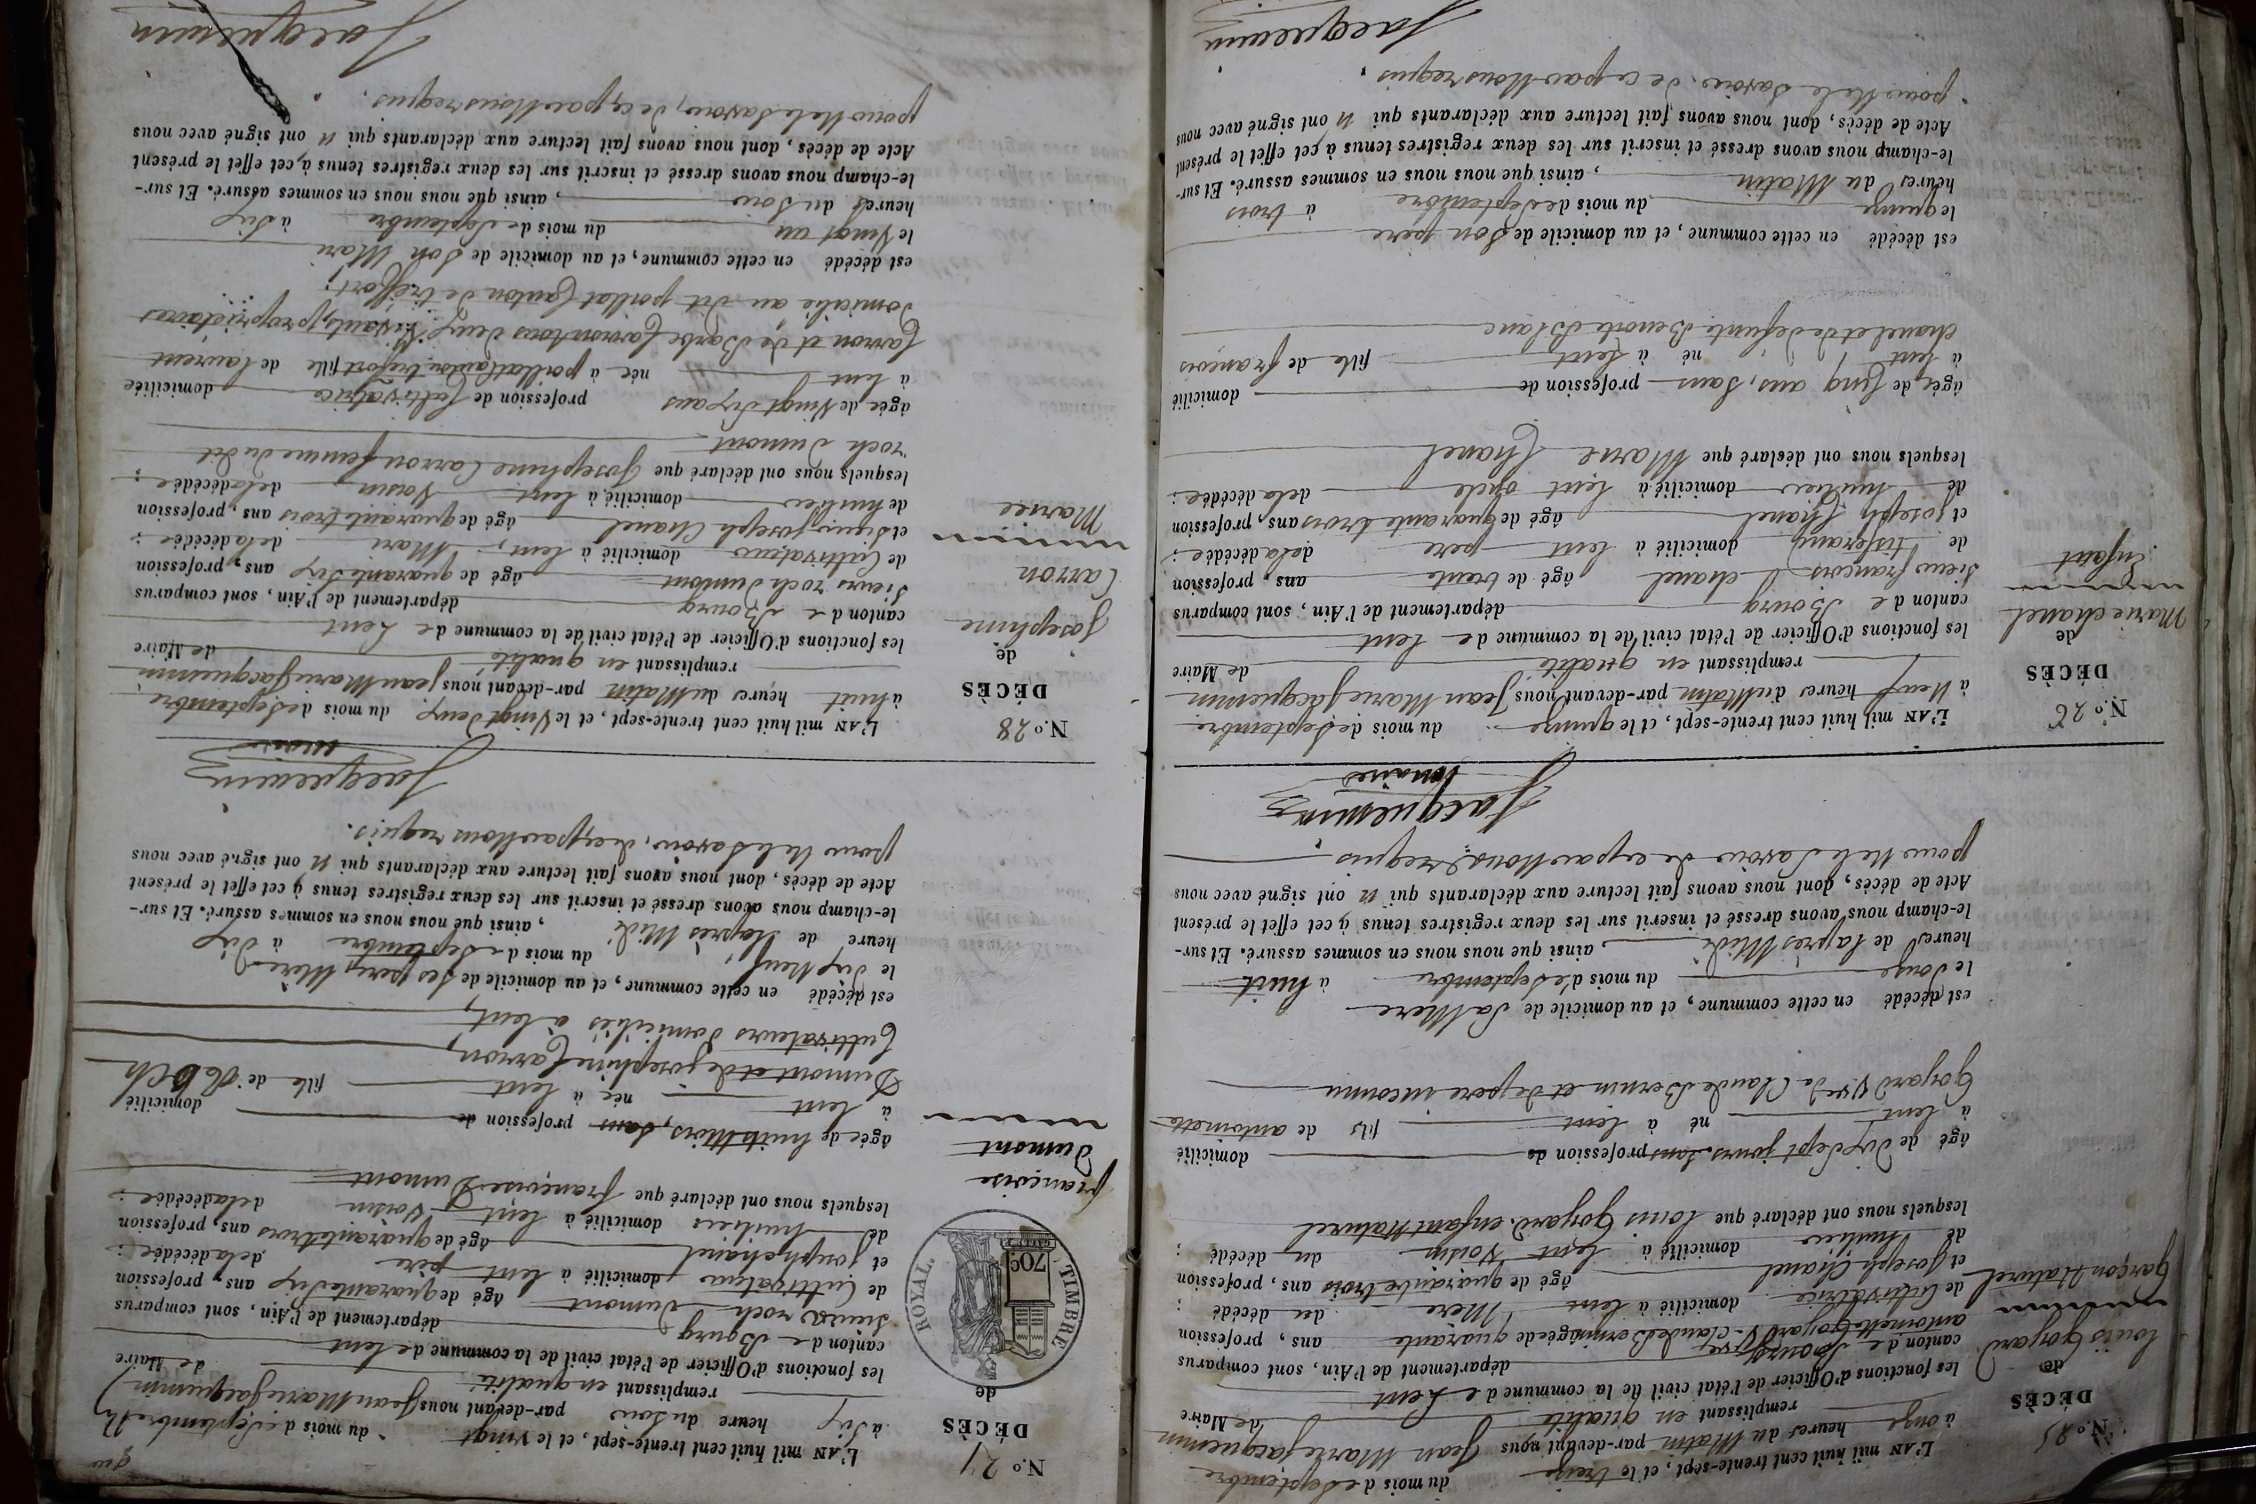 N.º 25
DÉCÈS
de
Louis Goyard
garçon Naturel
L'AN mil huit cent trente-sept, et le treize du mois de Septembre
à onze heures du Matin par-devant nous Jean Marie Jacquemin
remplissant en qualité de Maire
les fonctions d'Officier de l'état civil de la commune de Lent
canton de Bourg département de l'Ain, sont comparus
antoinette Goyard Vve Claude Bernin âgée de quarante ans, profession
de Cultivatrice domicilié à lent Mere du décédé ;
et joseph Chanel âgé de quarante trois ans, profession
de huilier domicilié à lent Voisin du décédé ;
lesquels nous ont déclaré que Louis Goyard, enfant Naturel
âgé de dix Sept jours, Sans profession de domicilié
à lent né à lent fils de antoinette
Goyard Vve de Claude Bernin et de pere inconnu
est décédé en cette commune, et au domicile de Sa Mere
le douze du mois de Septembre à huit
heures de l'après Midi, ainsi que nous nous en sommes assuré. Et sur-
le-champ nous avons dressé et inscrit sur les deux registres tenus à cet effet le présent
Acte de décès, dont nous avons fait lecture aux déclarants qui n'ont signé avec nous
pour Ne le Savoir de ce par Nous requis.
Jacquemin
maire
N.º 26
DÉCÈS
de
Marie chanel
Enfant
L'AN mil huit cent trente-sept, et le quinze du mois de Septembre
à Neuf heures du Matin par-devant nous Jean Marie Jacquemin
remplissant en qualité de Maire
les fonctions d'Officier de l'état civil de la commune de Lent
canton de Bourg département de l'Ain, sont comparus
Sieur françois chanel âgé de trente ans, profession
de tisserand domicilié à lent pere de la décédée ;
et joseph Chanel âgé de quarante trois ans, profession
de huilier domicilié à lent oncle de la décédée ;
lesquels nous ont déclaré que Marie Chanel
âgée de Cinq ans, Sans profession de domicilié
à lent né à Lent fille de françois
chanel et de defunte Benoite Blanc
est décédé en cette commune, et au domicile de Son pere
le quinze du mois de Septembre à trois
heures du Matin, ainsi que nous nous en sommes assuré. Et sur-
le-champ nous avons dressé et inscrit sur les deux registres tenus à cet effet le présent
Acte de décès, dont nous avons fait lecture aux déclarants qui n'ont signé avec nous
pour Ne le Savoir, de ce par Nous requis
Jacquemin
TIMBRE ROYAL
70c
N.º 27
DÉCÈS
de
françoise
Dumont
L'AN mil huit cent trente-sept, et le vingt du mois de Septembre
à Six heure du Soir par-devant nous Jean Marie Jacquemin
remplissant en qualité de Maire
les fonctions d'Officier de l'état civil de la commune de lent
canton de Bourg département de l'Ain, sont comparus
Sieurs roch Dumont âgé de quarante Six ans, profession
de Cultivateur domicilié à lent père de la décédée ;
et joseph chanel âgé de quarante trois ans, profession
de huilier domicilié à lent voisin de la décédée ;
lesquels nous ont déclaré que françoise Dumont
âgée de huits Mois, Sans profession de domicilié
à lent née à lent fille de Roch
Dumont et de josephine Carron,
Cultivateurs domiciliés à lent,
est décédé en cette commune, et au domicile de Ses pere, Mère
le dix Neuf du mois de Septembre à dix
heure de l'après Midi, ainsi que nous nous en sommes assuré. Et sur-
le-champ nous avons dressé et inscrit sur les deux registres tenus à cet effet le présent
Acte de décès, dont nous avons fait lecture aux déclarants qui n'ont signé avec nous
pour Ne le Savoir, de ce par Nous requis.
Jacquemin
maire
N.º 28
DÉCÈS
de
Josephine
Carron
Mariee
L'AN mil huit cent trente-sept, et le Vingt deux du mois de Septembre
à huit heures du Matin par-devant nous Jean Marie Jacquemin
remplissant en qualité de Maire
les fonctions d'Officier de l'état civil de la commune de Lent
canton de Bourg département de l'Ain, sont comparus
Sieurs roch Dumont âgé de quarante Six ans, profession
de Cultivateur domicilié à lent, Mari de la décédée ;
et Sieur joseph Chanel âgé de quarante trois ans, profession
de huilier domicilié à lent Voisin de la décédée ;
lesquels nous ont déclaré que Josephine Carron femme du dit
roch Dumont
âgée de Vingt Six ans profession de Cultivatrice domiciliée
à lent née à poillat Canton treffort fille de laurent
Carron et de Barbe Carron tous deux Vivants, propriétaires
domiciliés au dit poillat Canton de treffort
est décédé en cette commune, et au domicile de Son Mari
le Vingt un du mois de Septembre à Six
heures du Soir, ainsi que nous nous en sommes assuré. Et sur-
le-champ nous avons dressé et inscrit sur les deux registres tenus à cet effet le présent
Acte de décès, dont nous avons fait lecture aux déclarants qui n'ont signé avec nous
pour Ne le Savoir, de ce par Nous requis.
Jacquemin